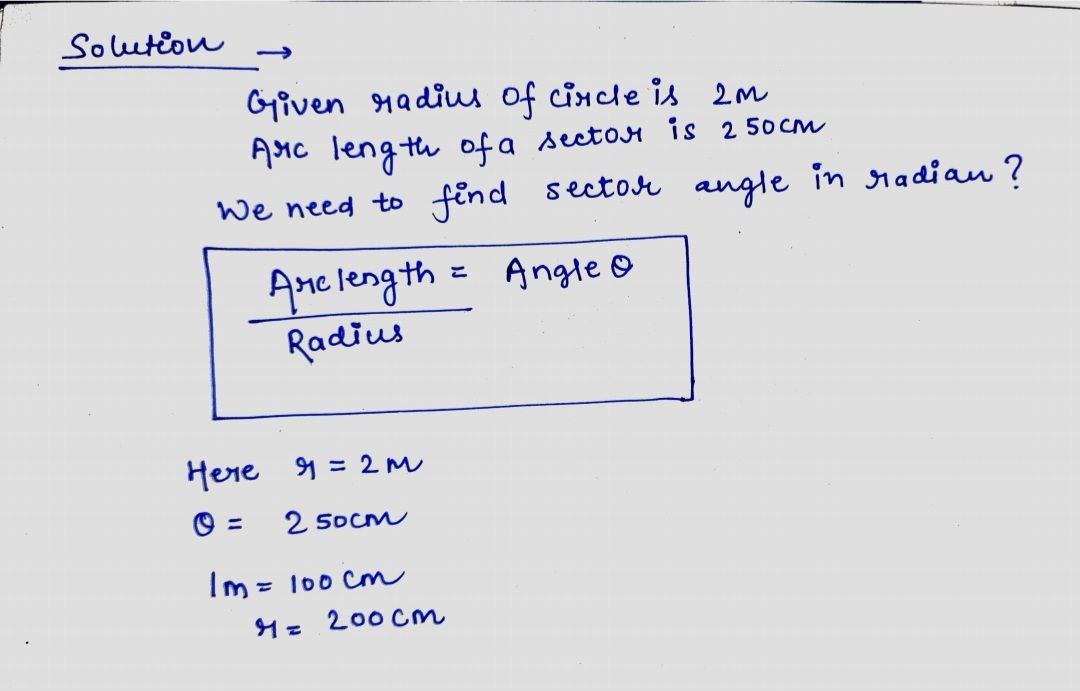 Solution →
Given radius of circle is 2m
Arc length of a sector is 250cm
We need to find sector angle in radian?
Arc length = Angle θ
Radius
Here r = 2m
θ = 250cm
1m = 100 cm
r = 200cm